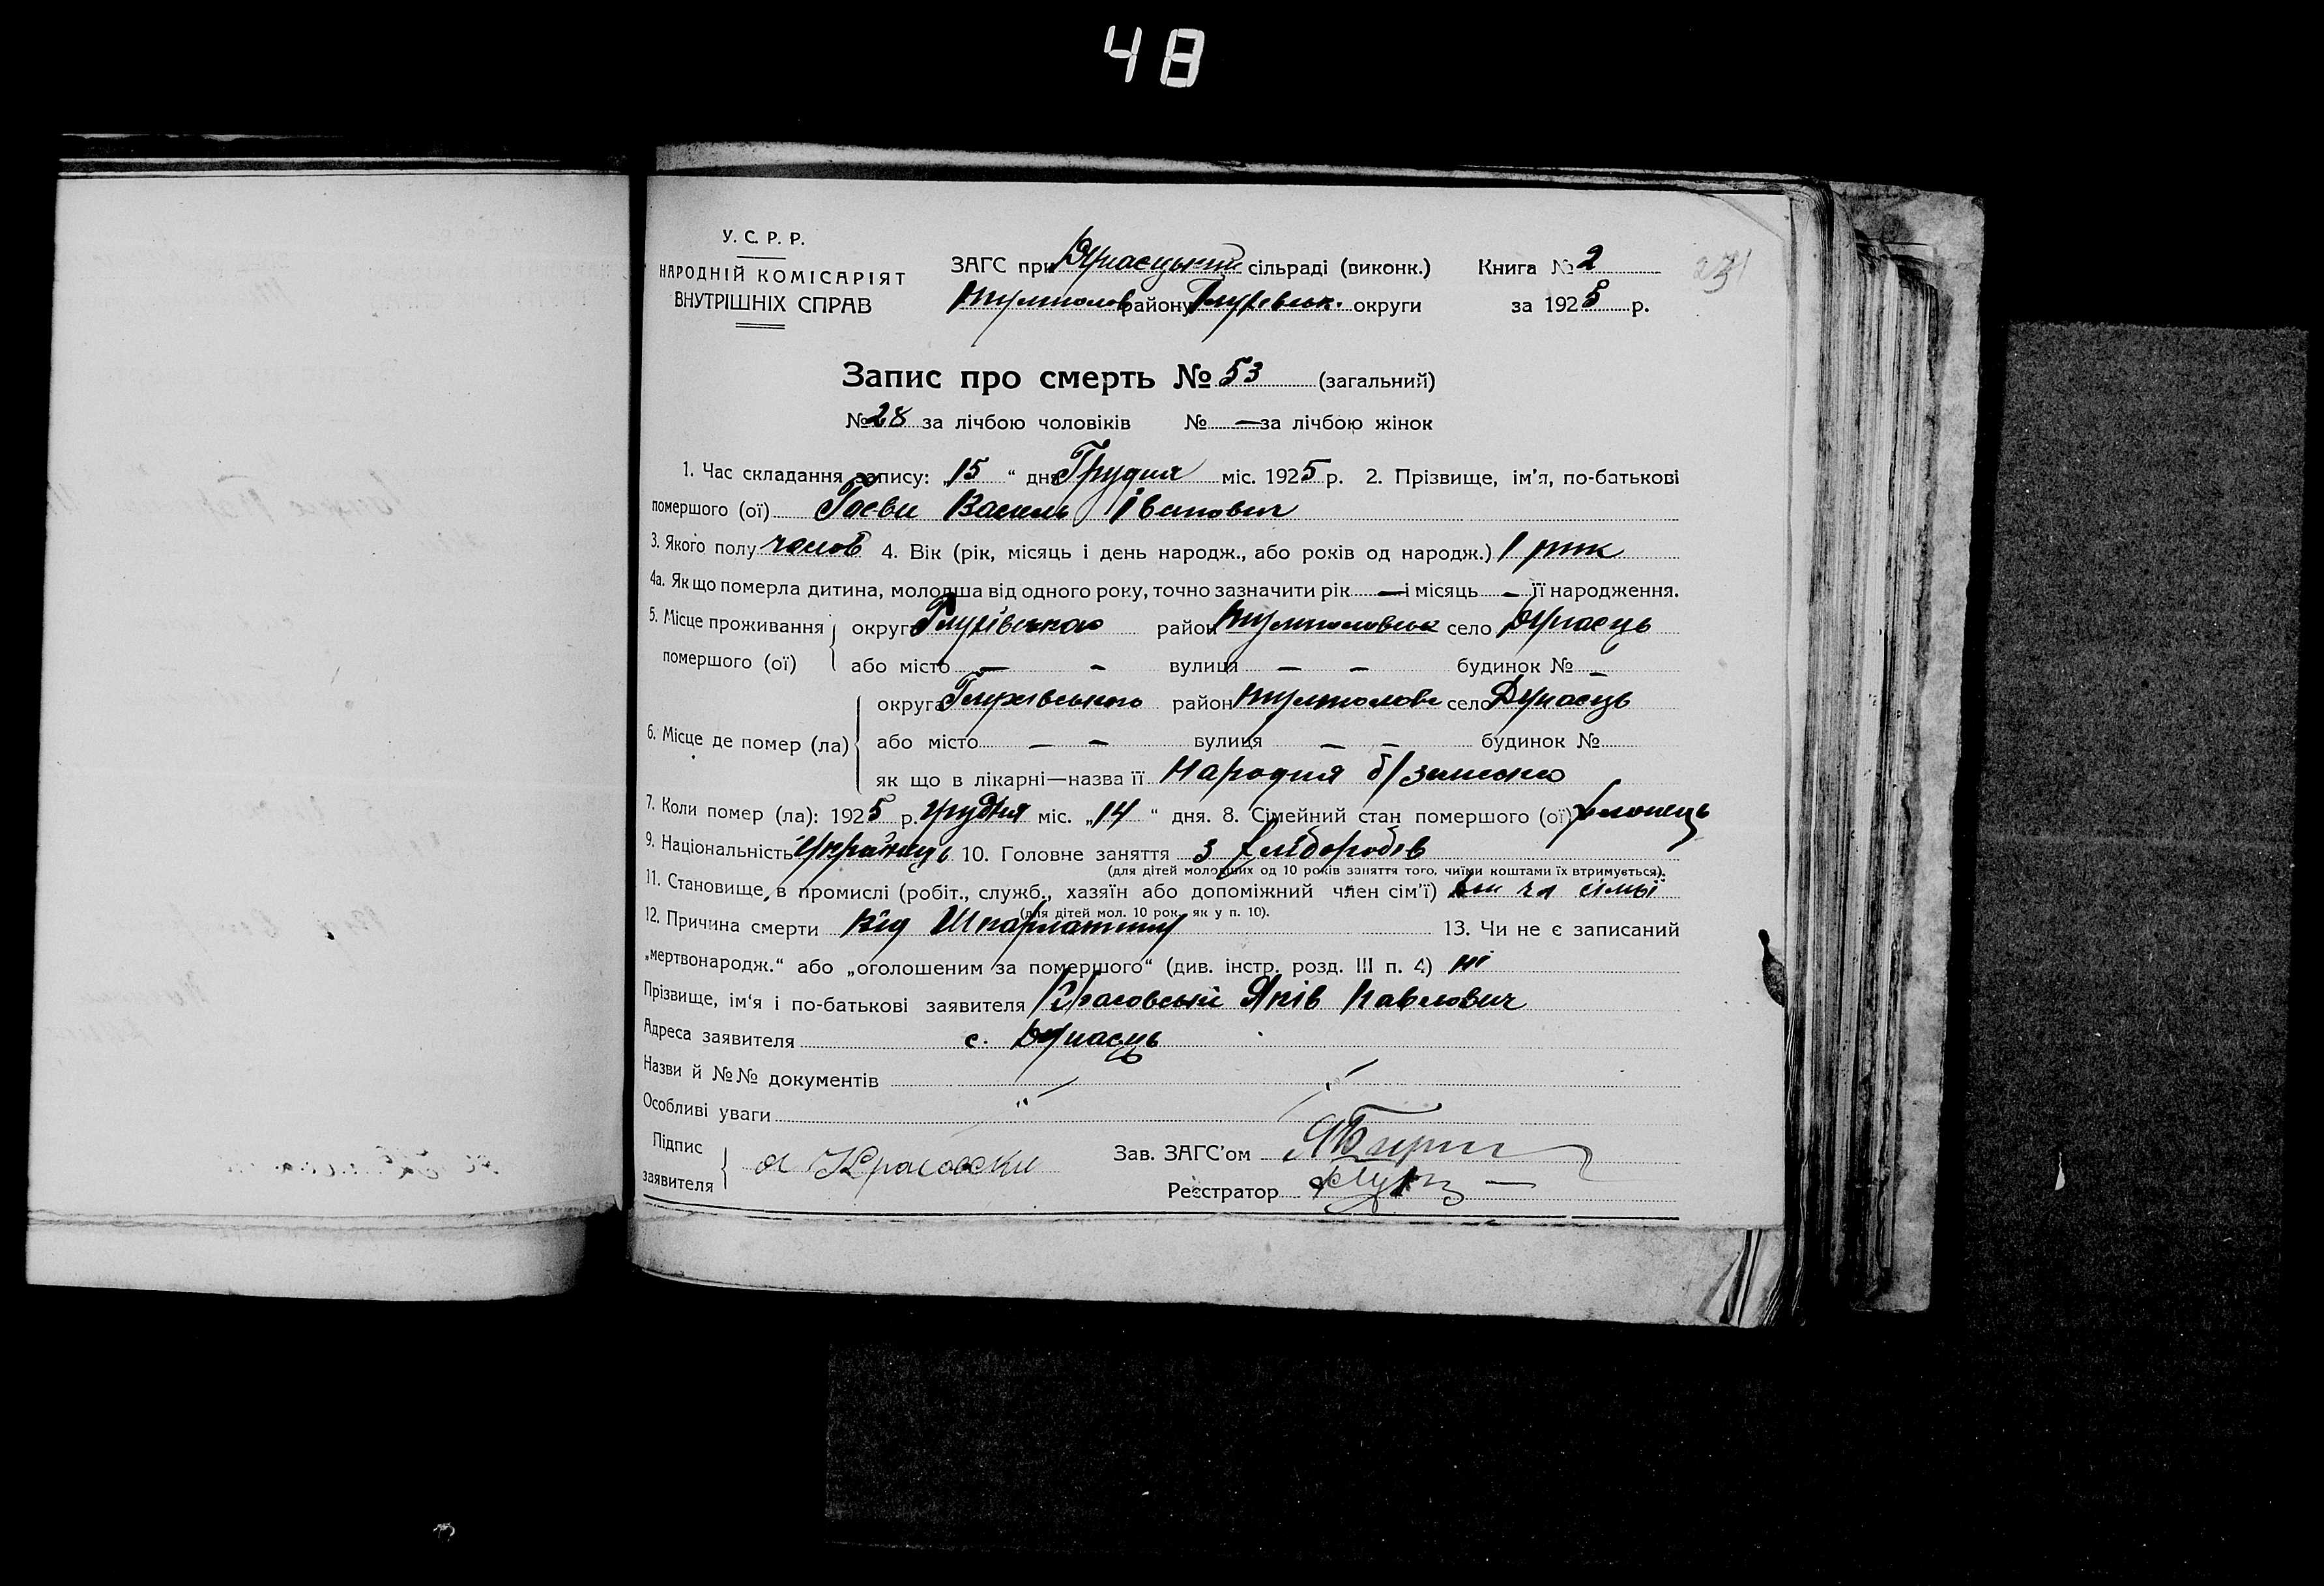 48
У. С. Р. Р.
НАРОДНІЙ КОМІСАРІЯТ
ВНУТРІШНІХ СПРАВ
ЗАГС при Дунаєцький сільраді (виконк.) Книга № 2
району Глухівськ. округи за 1925 р.
Запис про смерть № 53 (загальний)
№ 28 за лічбою чоловіків № — за лічбою жінок
1. Час складання запису: „15 “ дн Грудня міс. 1925 р. 2. Прізвище, ім'я, по-батькові
помершого (ої) Василь Іванович
3. Якого полу чолов 4. Вік (рік, місяць і день народж., або років од народж.) 1 рик
4а. Як що померла дитина, молодша від одного року, точно зазначити рік — і місяць — її народження.
5. Місце проживання округа Глухівського район село Дунаєць
помершого (ої) або місто — - вулиця — — будинок № —
округа Глухівського район село Дунаєць
6. Місце де помер (ла) або місто — — вулиця — — будинок №
як що в лікарні—назва її Народня
7. Коли помер (ла): 1925 р. грудня міс. „14 “ дня. 8. Сімейний стан помершого (ої) хлопець
9. Національність Українець 10. Головне заняття з хліборобів
(для дітей молодших од 10 років заняття того, чиїми коштами їх втримується).
11. Становище, в промислі (робіт., служб., хазяїн або допоміжний член сім'ї) чл сімьї
(для дітей мол. 10 рок. як у п. 10).
12. Причина смерти від Шкарлатини 13. Чи не є записаний
„мертвонародж.“ або „оголошеним за помершого“ (див. інстр. розд. III п. 4) ні
Прізвище, ім'я і по-батькові заявителя Красовський Яків Павлович
Адреса заявителя с. Дунаєць
Назви й №№ документів
Особливі уваги
Підпис
заявителя Я Красовски
Зав. ЗАГС'ом
Реєстратор